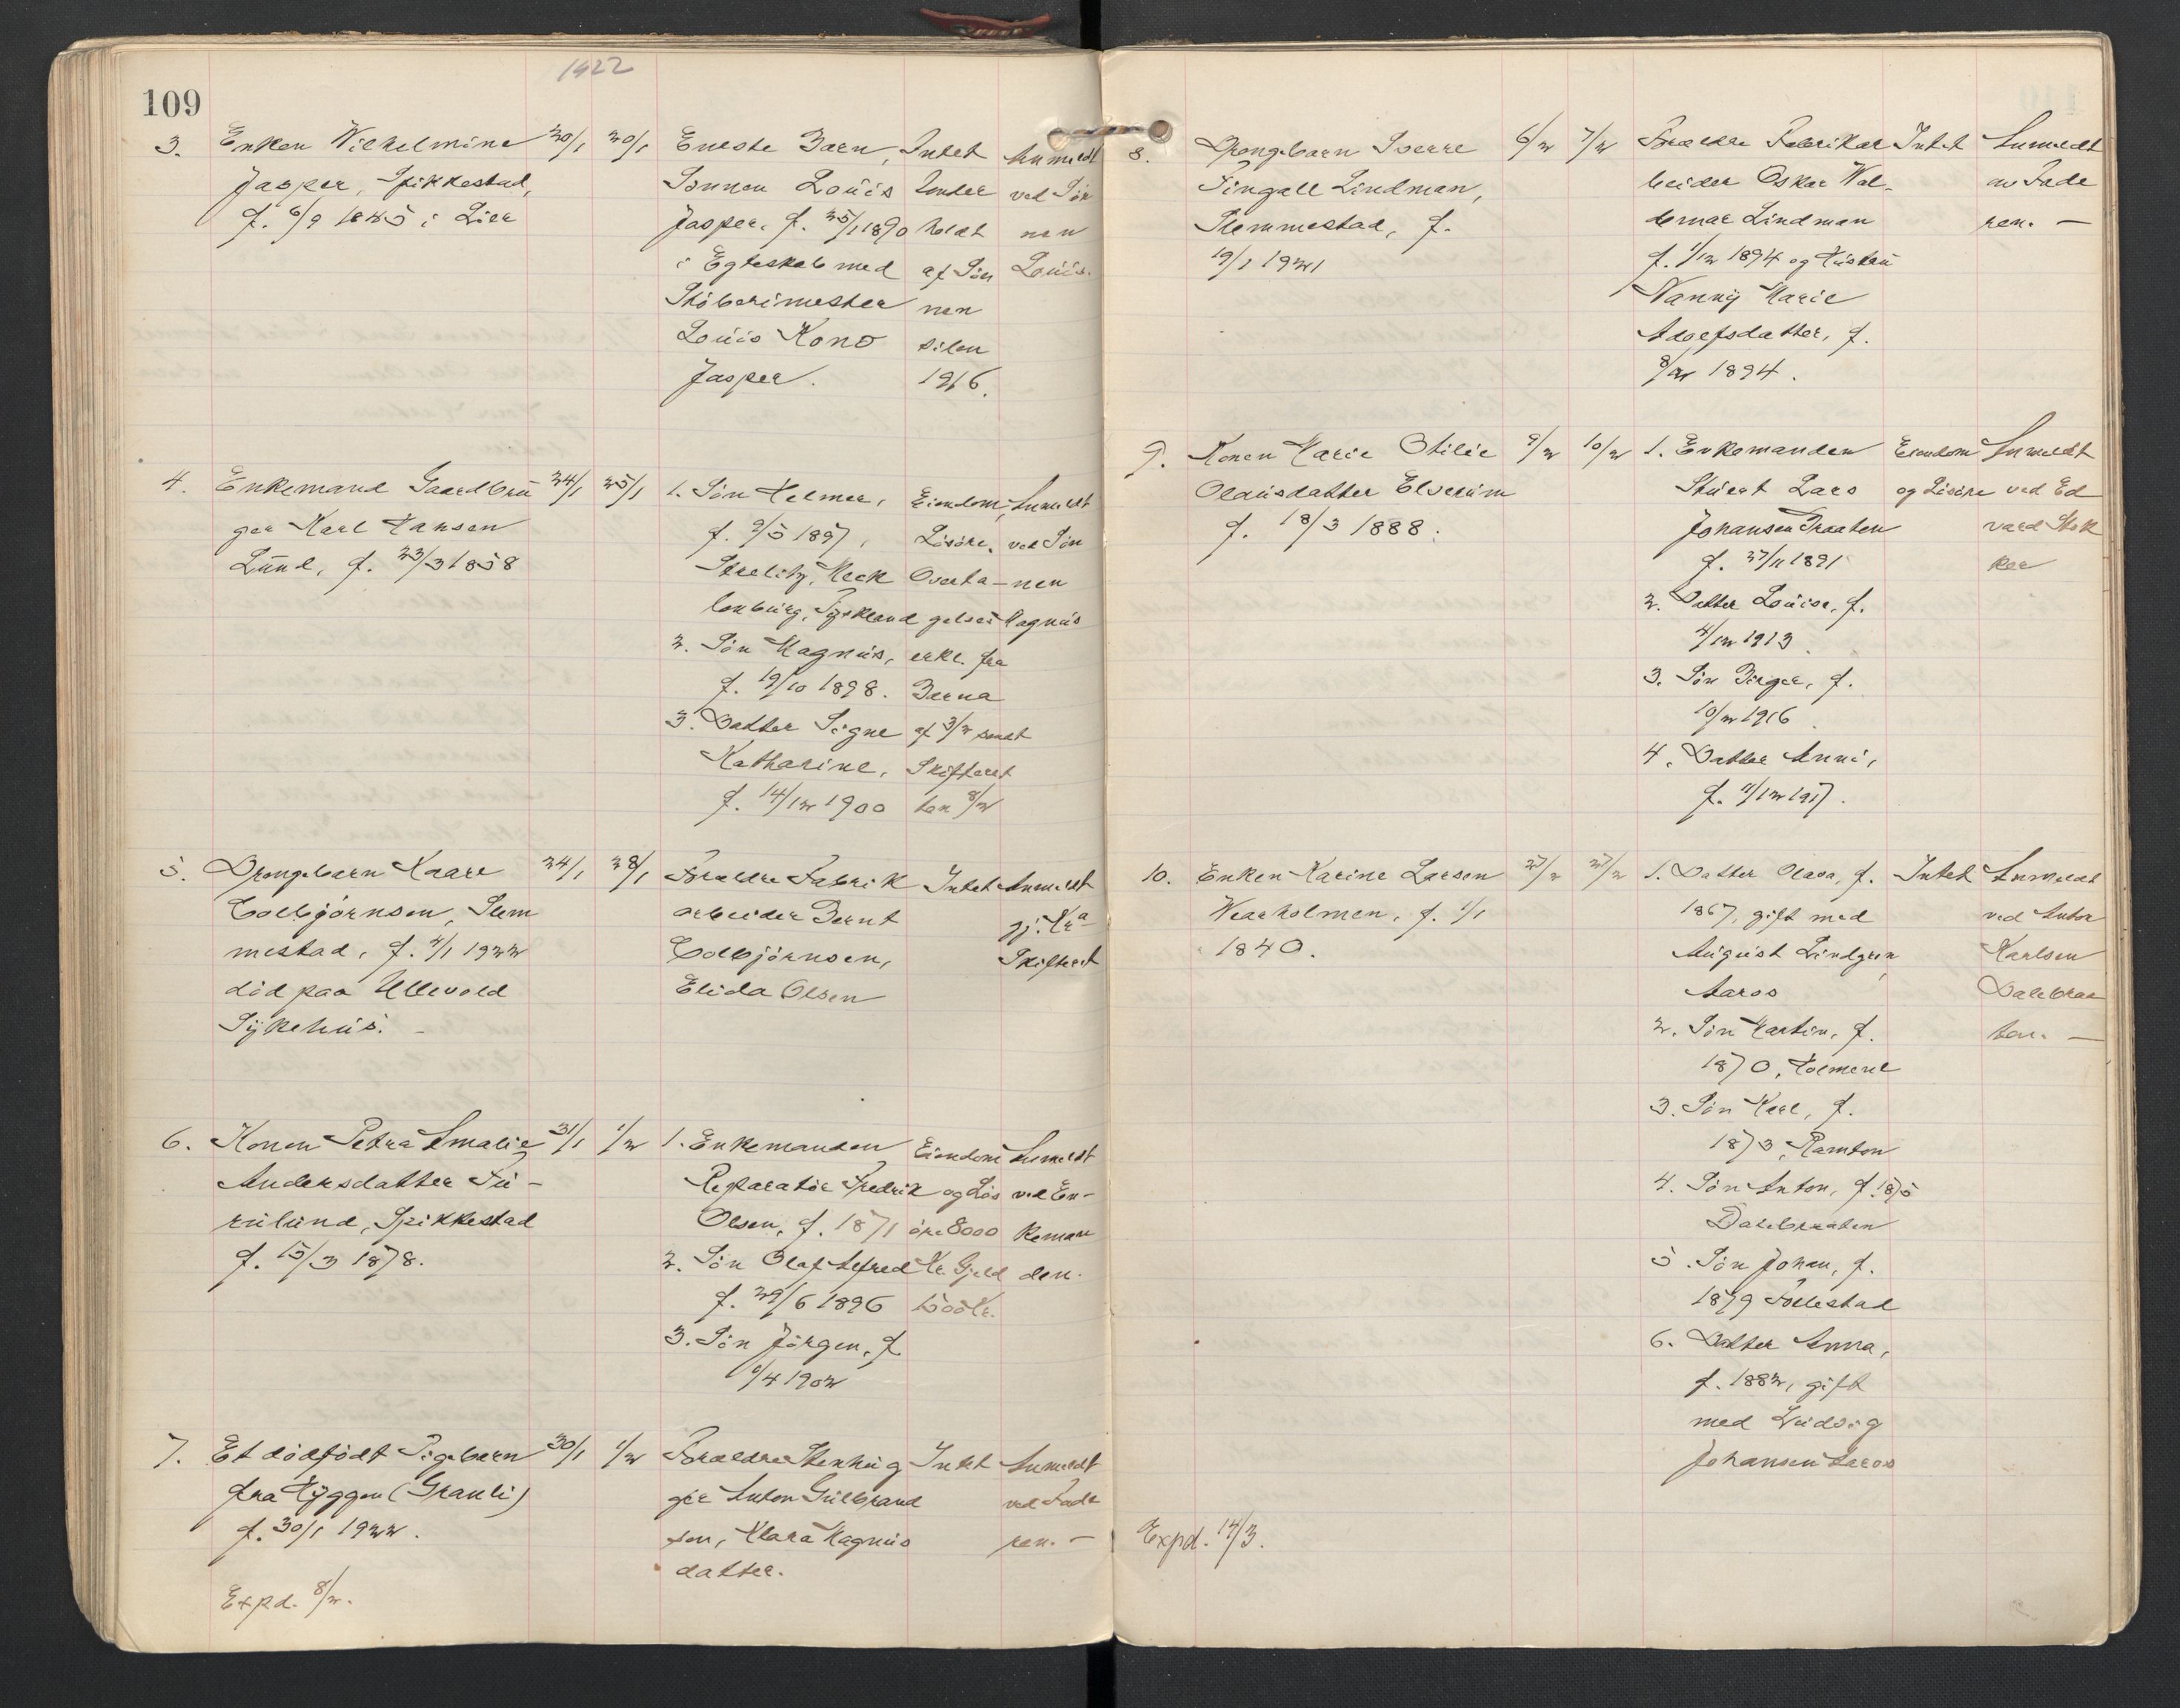 1922
109
3. Enken Wilhelmine 20/1 30/1 Eneste Barn, Intet Anmeldt
Jasper, Spikkestad, Sønnen Louis Under ved Søn
f. 6/9 1845 i Lier Jasper, f. 25/1 1890 holdt nen
i Egteskab med af Søn Louis.
Støberimester nen
Louis Kono siden
Jasper. 1916.
4. Enkemand Gaardbru 24/1 25/1 1. Søn Helmer, Eiendom, Anmeldt
ger Karl Hansen f. 9/5 1897, Løsøre. ved Søn
Lund, f. 23/3 1858 Strelitz, Meck Overta- nen
lenburg, Tyskland gelses Magnus
2. Søn Magnus, erkl. fra
f. 19/10 1898. Barna
3. Datter Signe af 3/2 sendt
Katharine, Skifteret
f. 14/12 1900 ten 8/2
5. Drengebarn Kaare 24/1 28/1 Forældre Fabrik Intet Anmeldt
Colbjørnsen, Slem arbeider Bernt gj. Kra
mestad, f. 4/1 1922 Colbjørnsen, Skifteret
død paa Ullevold Elida Olsen
Sykehus. -
6. Konen Petra Amalie 31/1 1/2 1. Enkemanden Eiendom Anmeldt
Andersdatter Fu- Reparatør Fredrik og Løs ved En-
rulund, Spikkestad Olsen, f. 1871 øre 8000 keman
f. 15/3 1878. 2. Søn Olaf Alfred Kr. Gjeld den.
f. 29/6 1896 1500 Kr.
3. Søn Jørgen, f.
1/4 1902
7. Et dødfødt Pigebarn 30/1 1/2 Forældre Stenhug Intet Anmeldt
fra Hyggen (Granli) ger Anton Gulbrand ved Fade
f. 30/1 1922. sen, Klara Magnus ren. -
datter.
Expd. 8/2.
8. Drengebarn Sverre 6/2 7/2 Forældre Fabrikar Intet Anmeldt
Fingall Lindman, beider Oskar Wal- av Fade
Slemmestad, f. demar Lindman ren. -
19/1 1921 f. 1/12 1894 og Hustru
Nanny Marie
Adolfsdatter, f.
8/2 1894.
9. Konen Marie Otilie 9/2 10/2 1. Enkemanden Eiendom Anmeldt
Olausdatter Elverum Stuert Lars og Løsøre ved Ed
f. 18/3 1888. Johansen Braaten vard Stok
f. 27/11 1891 ker
2. Datter Louise, f.
4/12 1913
3. Søn Birger, f.
10/2 1916
4. Datter Anni,
f. 11/12 1917.
10. Enken Karine Larsen 27/2 27/2 1. Datter Olava, f. Intet Anmeldt
Wearholmen, f. 1/1 1867, gift med ved Anton
1840. August Lindgren Karlsen
Aaros Dalebraa
2. Søn Martin, f. ten. -
1870, Holmene
3. Søn Karl, f.
1873, Ramton
4. Søn Anton, f. 1875
Dalebraaten
5. Søn Johan, f.
1879 Follestad
6. Datter Anna,
f. 1882, gift
med Ludvig
Johansen Aaros
Expd. 14/3.